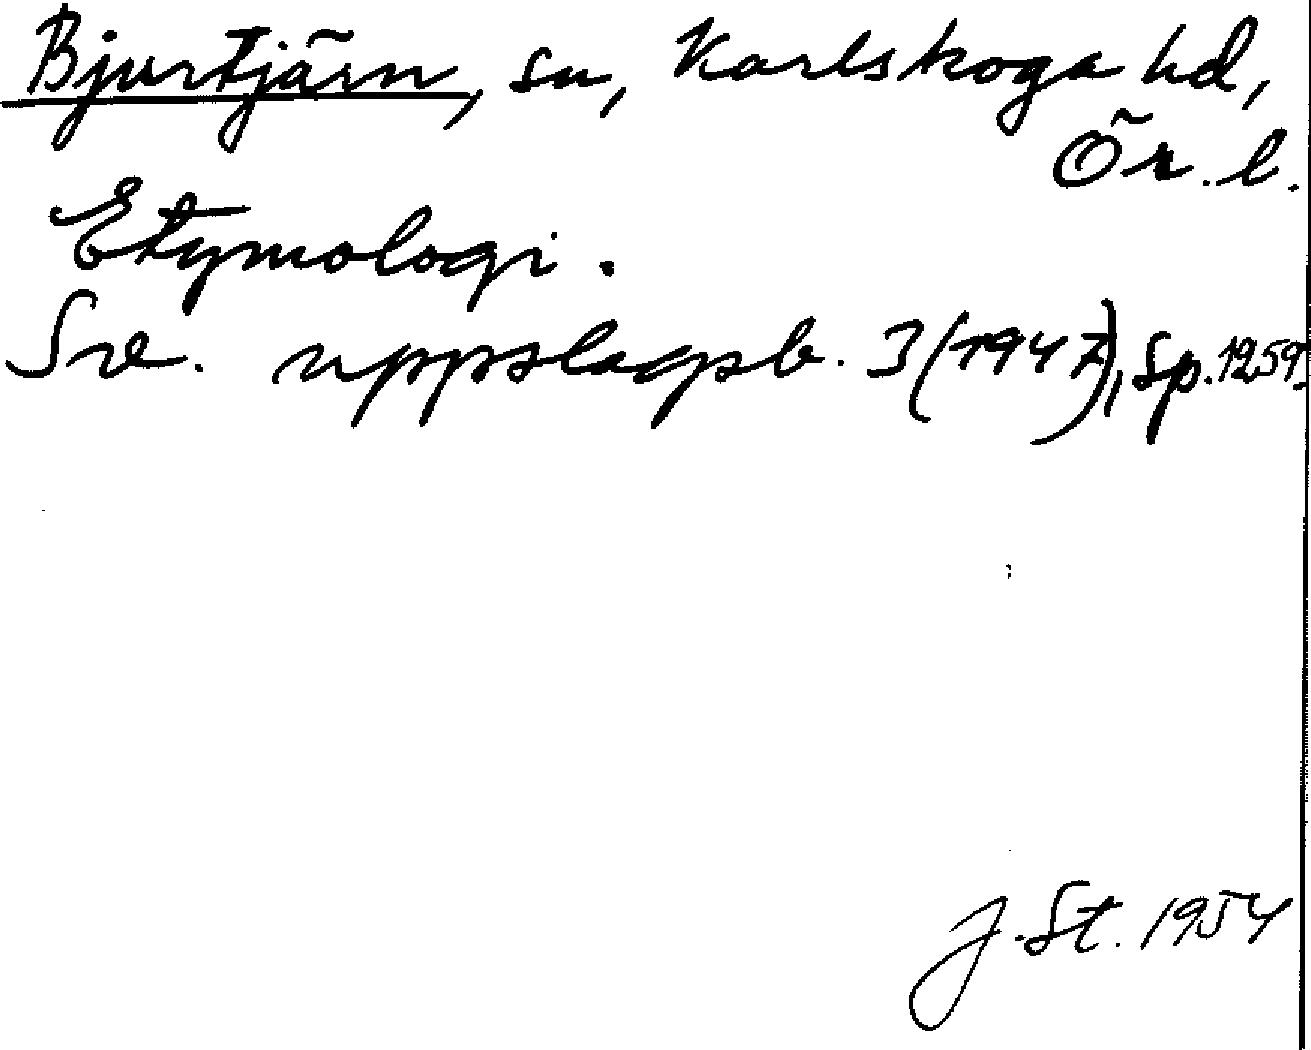 Bjurtjärn, sn, Karlskoga hd,
Ör. l.
Etymologi.
Sv. uppslagsb. 3 (1947), Sp. 1259.
J. St. 1954